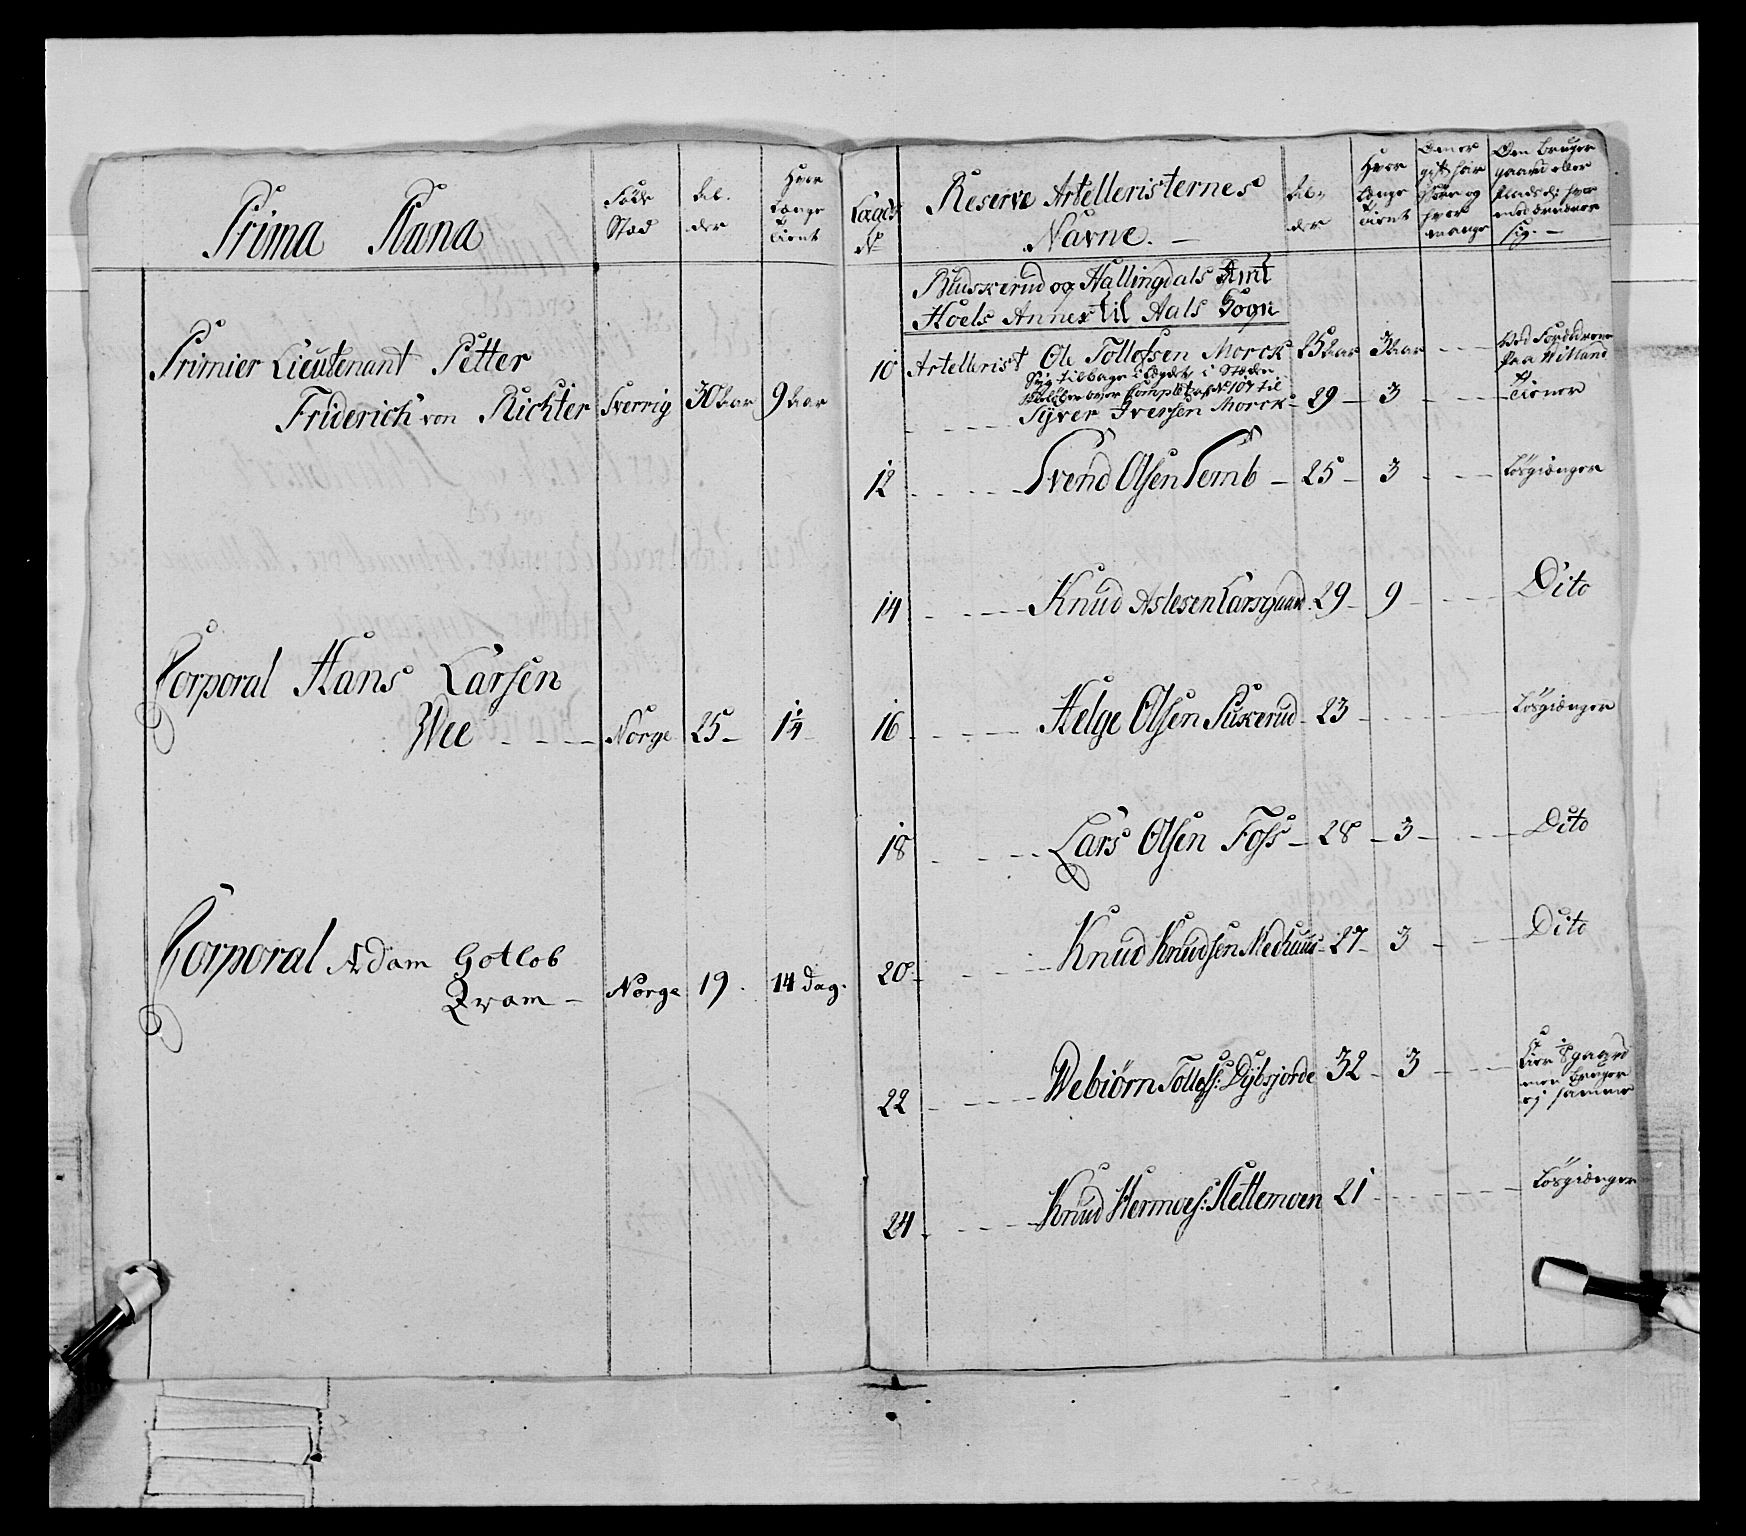 Prima Plana
Føde Stæd
Al- der
Hvor Længe tient
Primier Lieutenant Petter
Friderich von Richter Sverrig 30 aar 9 aar
Corporal Hans Larsen
Wee - - - Norge 25 - 1¼ -
Corporal Adam Gotlob
Qvam - Norge 19. 14 Dag.
Lægds No
Reserve Artelleristernes
Navne. -
Al- der
Hvor Længe tient
Om er gift har Børn og hvor mange
Om bruger gaard eller Plads di hvor med ernærer sig. -
Budskerud og Hallingdals Amt
Hoels Annex til Aals Sogn
10 Artellerist Ole Tollefsen Morck 25 aar 3 aar - - -
Syg tilbage i Lægdet i Stæden
Sÿver Iversen Morck - 29 - 3 - - - tiener
12 - - - Svend Olsen Pemb - 25 - 3 - - - Løsgiænger
14 - - - Knud Aslesen Larsgaard 29 - 9 - - - Dito
16 - - - Helge Olsen Sukerud - 23 - - - Løsgiænger
18 - - - Lars Olsen Foss - 28 - 3 - - - Dito
20 - - - Knud Knudsen Medhuus - 27 - 3 - - - Dito
22 - - - Webiørn Tollefs: Dÿbsjorde 32 - 3 - - -
gaard
men bruger
ej samme
24 - - - Knud Hermoes: Slettemoen 21 - - - Løsgiænger